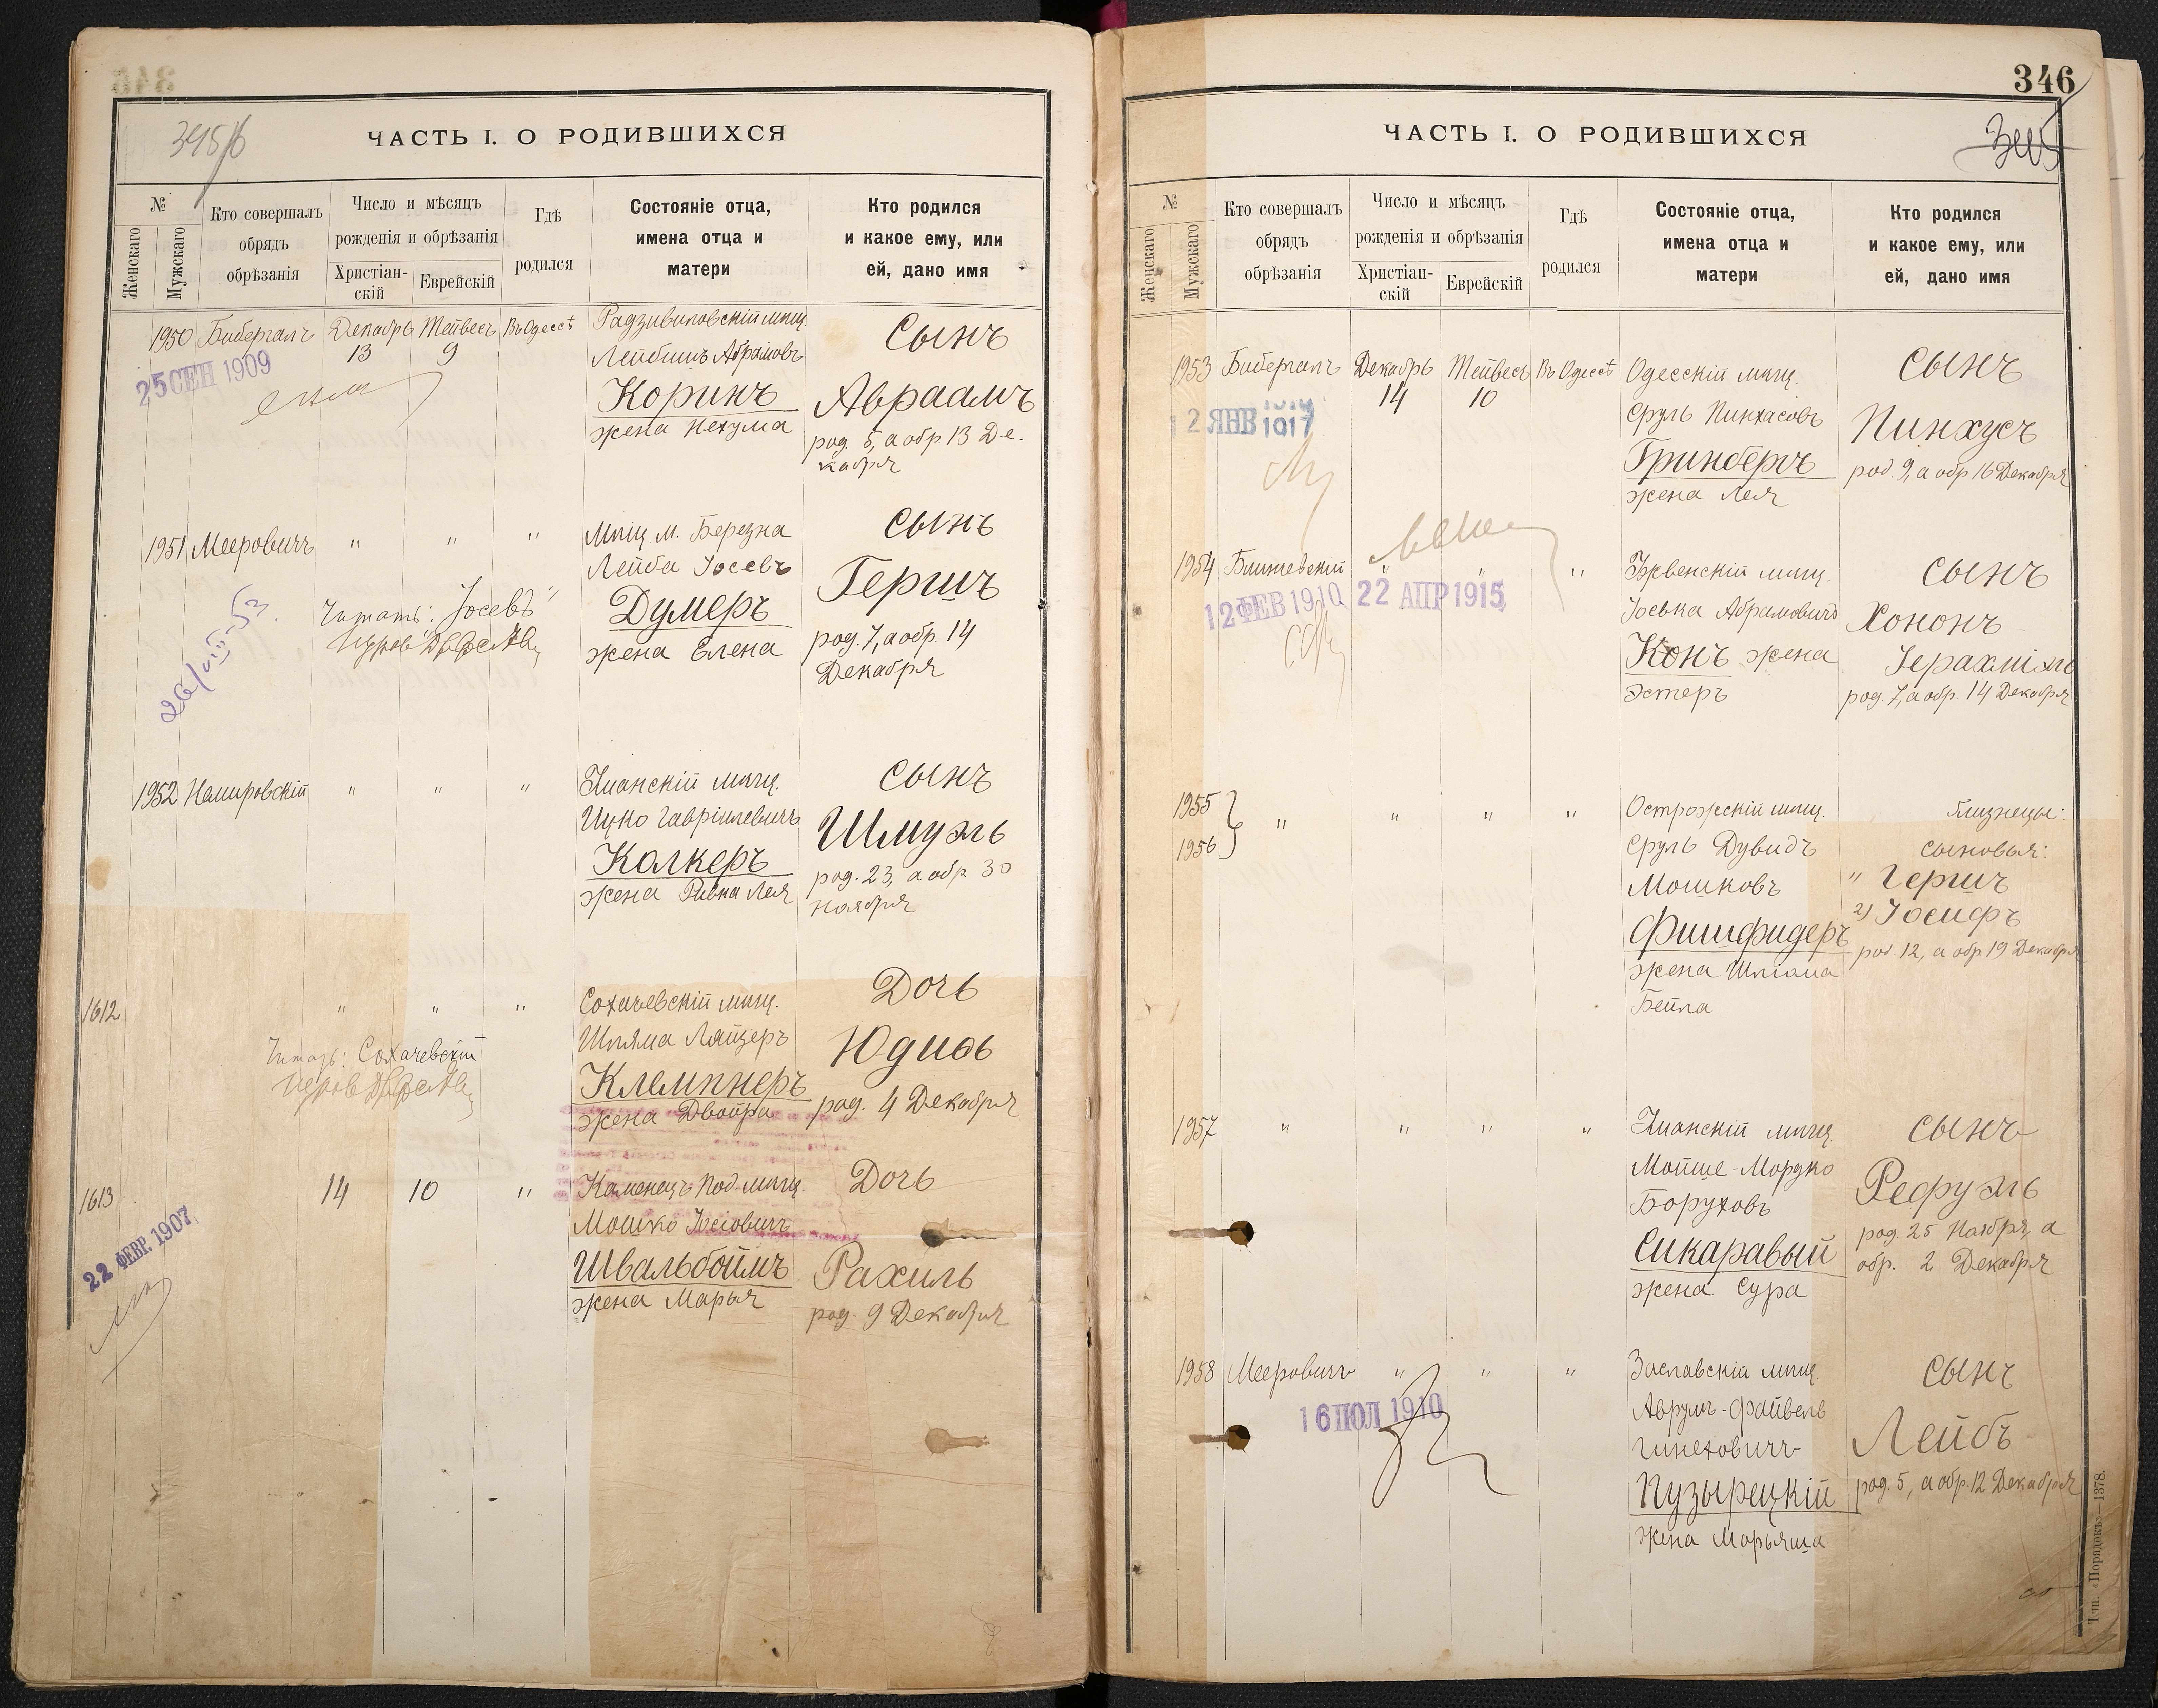 ЧАСТЬ I. О РОДИВШИХСЯ
№
Женскаго
Мужскаго
Кто совершалъ
обрядъ
обрѣзанія
Число и мѣсяцъ
рожденія и обрѣзанія
Христіан-
скій
Еврейскій
Гдѣ
родился
Состояніе отца,
имена отца и
матери
Кто родился
и какое ему, или
ей, дано имя
1950 Бибергалъ Декабрь Тейвесъ Въ Одессѣ Радзивиловскій мѣщ.
13 9
25 СЕН 1909
Лейбишъ Абрамовъ
Коринъ
жена Нехума
Сынъ
Авраамъ
род. 5, а обр. 13 Де-
кабря
1951 Мееровичъ " " "
Мѣщ. м. Березна
Лейба Іосевъ
Думеръ
жена Елена
Сынъ
Гершъ
род. 7, а обр. 14
Декабря
Читать: "Іосевъ"
1952 Немировскій " " "
мѣщ.
Ицко Гавріилевичъ
Колкеръ
жена Ривка Лея
Сынъ
Шмуэль
род. 23, а обр. 30
Ноября
1612 " " "
Сохачевскій мѣщ.
Шляма Лайзеръ
Клемпнеръ
жена Двойра
Дочь
Юдиѳь
род. 4 Декабря
Читать: Сохачевскій
1613 14 10 "
22 ФЕВР. 1907
Каменецъ Под. мѣщ.
Мошко Іосіовичъ
Швальбоймъ
жена Марья
Дочь
Рахиль
род. 9 Декабря
346
ЧАСТЬ I. О РОДИВШИХСЯ
№
Женскаго
Мужскаго
Кто совершалъ
обрядъ
обрѣзанія
Число и мѣсяцъ
рожденія и обрѣзанія
Христіан-
скій
Еврейскій
Гдѣ
родился
Состояніе отца,
имена отца и
матери
Кто родился
и какое ему, или
ей, дано имя
1953 Бибергалъ Декабрь Тейвесъ Въ Одессѣ
14 10
12 ЯНВ 1917
Одесскій мѣщ.
Сруль Пинхасовъ
Гринбергъ
жена Лея
Сынъ
Пинхусъ
род. 9, а обр 16 Декабря
1954 " " "
12 ФЕВ 1910 22 АПР 1915
мѣщ.
Іоська Абрамовичъ
Конъ жена
Эстеръ
Сынъ
Хононъ
Іерахміэль
род. 7, а обр. 14 Декабря
1955
1956 " " " "
Острожскій мѣщ.
Сруль Дувидъ
Мошковъ
Фишфидеръ
жена Шліома
Бейла
Близнецы:
сыновья:
" Гершъ
2) Іосифъ
род. 12, а обр 19 Декабря
1957 " " " "
мѣщ.
Мойше-Мордко
Боруховъ
Сикаравый
жена Сура
Сынъ
Рефуэль
род. 25 Ноября, а
обр. 2 Декабря
1958 Мееровичъ " " "
16 ІЮЛ 1910
Заславскій мѣщ.
Аврумъ-Файвель
Пузырецкій
жена Марьяша
Сынъ
Лейбъ
род. 5, а обр. 12 Декабря
Тип. «Порядокъ»—1378.